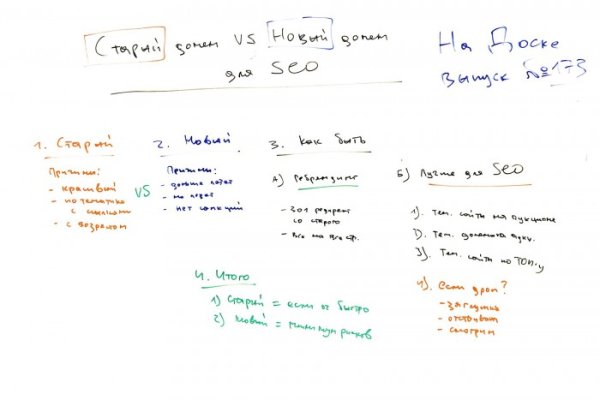 Старый домен VS Новый домен
для SEO
На Доске
выпуск №173
1. Старый
Причины:
- красивый
- по тематике
с ссылками
- с возрастом
VS
2. Новый
Причины:
- дольше
- нет санкций
3. Как быть
А) Ребрендинг
- 301 редирект
со старого
- Все на все стр.
Б) Лучше для SEO
1). Тем. сайты на аукционе
2). Тем. домена
3). Тем. сайты по ТОП-у
4). Если дроп?
- заглушка
- смотрим
4. Итого
1) Старый = если оч быстро
2) Новый = минимум рисков